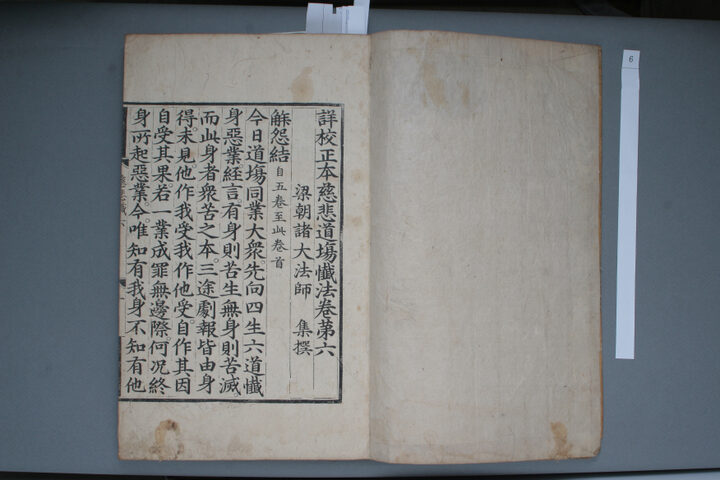 詳校正本慈悲道塲懺法卷第六
梁朝諸大法師 集撰
觧怨結 自五卷至此卷首
今日道塲同業大衆。先向四生六道懺
身惡業。經言有身則苦生無身則苦滅。
而此身者衆苦之本。三途劇報皆由身
得。未見他作我受我作他受。自作其因
自受其果。若一業成罪無邊際何况終
身所起惡業。今唯知有我身不知有他
6